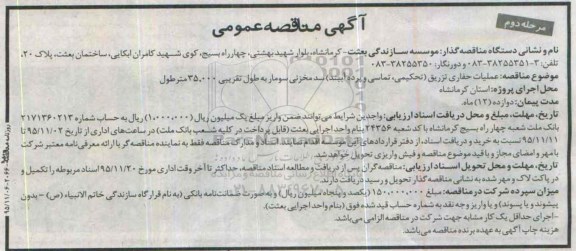 آگهی مناقصه عمومی
مرحله دوم
نام و نشانی دستگاه مناقصه گذار: موسسه سازندگی بعثت- کرمانشاه، بلوار شهید بهشتی، چهارراه بسیج، کوی شهید کامران ابکایی، ساختمان بعثت، پلاک ۲۰،
تلفن: ۳-۳۸۲۵۵۳۵۱-۰۸۳ و دورنگار: ۳۸۲۵۵۳۵۰-۰۸۳
موضوع مناقصه: عملیات حفاری تزریق (تحکیمی، تماسی و پرده آببند) سد مخزنی سومار به طول تقریبی ۳۵،۰۰۰ مترطول
محل اجرای پروژه: استان کرمانشاه
مدت پیمان: دوازده (۱۲) ماه
تاریخ، مهلت، مبلغ و محل دریافت اسناد ارزیابی: واجدین شرایط می توانند ضمن واریز مبلغ یک میلیون ریال (۱،۰۰۰،۰۰۰) ریال به حساب شماره ۲۱۷۱۳۶۰۲۱۳
بانک ملت شعبه چهار راه بسیج کرمانشاه با کد شعبه ۲۴۳۵۶ بنام واحد اجرایی بعثت (قابل پرداخت در کلیه شعب بانک ملت) در ساعت‌های اداری از تاریخ ۹۵/۱۱/۰۲ تا
۹۵/۱۱/۱۱ نسبت به خرید و دریافت اسناد، از دفتر قراردادهای این موسسه اقدام نمایند. اسناد و مدارک مناقصه فقط به نماینده مناقصه گر با ارائه معرفی نامه معتبر شرکت
با مهر و امضای مجاز و با قید موضوع مناقصه و فیش واریزی تحویل خواهد شد.
تاریخ، مهلت و محل تحویل اسناد ارزیابی: مناقصه گران پس از دریافت و مطالعه اسناد مناقصه، حداکثر تا آخر وقت اداری مورخ ۹۵/۱۱/۲۰ اسناد مربوطه را تکمیل و
در پاکت لاک و مهر شده به نشانی مناقصه گذار تحویل و رسید دریافت دارند.
میزان سپرده شرکت در مناقصه: مبلغ ۱۵۰،۰۰۰،۰۰۰ (یکصد و پنجاه میلیون ریال) که به صورت ضمانت نامه بانکی (به نام قرارگاه سازندگی خاتم الانبیاء (ص) - بدون
پیشوند و یا پسوند) و یا واریز وجه نقد به شماره حساب قید شده فوق (بنام واحد اجرایی بعثت).
-اجرای حداقل یک کار مشابه جهت شرکت در مناقصه الزامی می باشد.
هزینه چاپ آگهی به عهده برنده مناقصه می باشد.